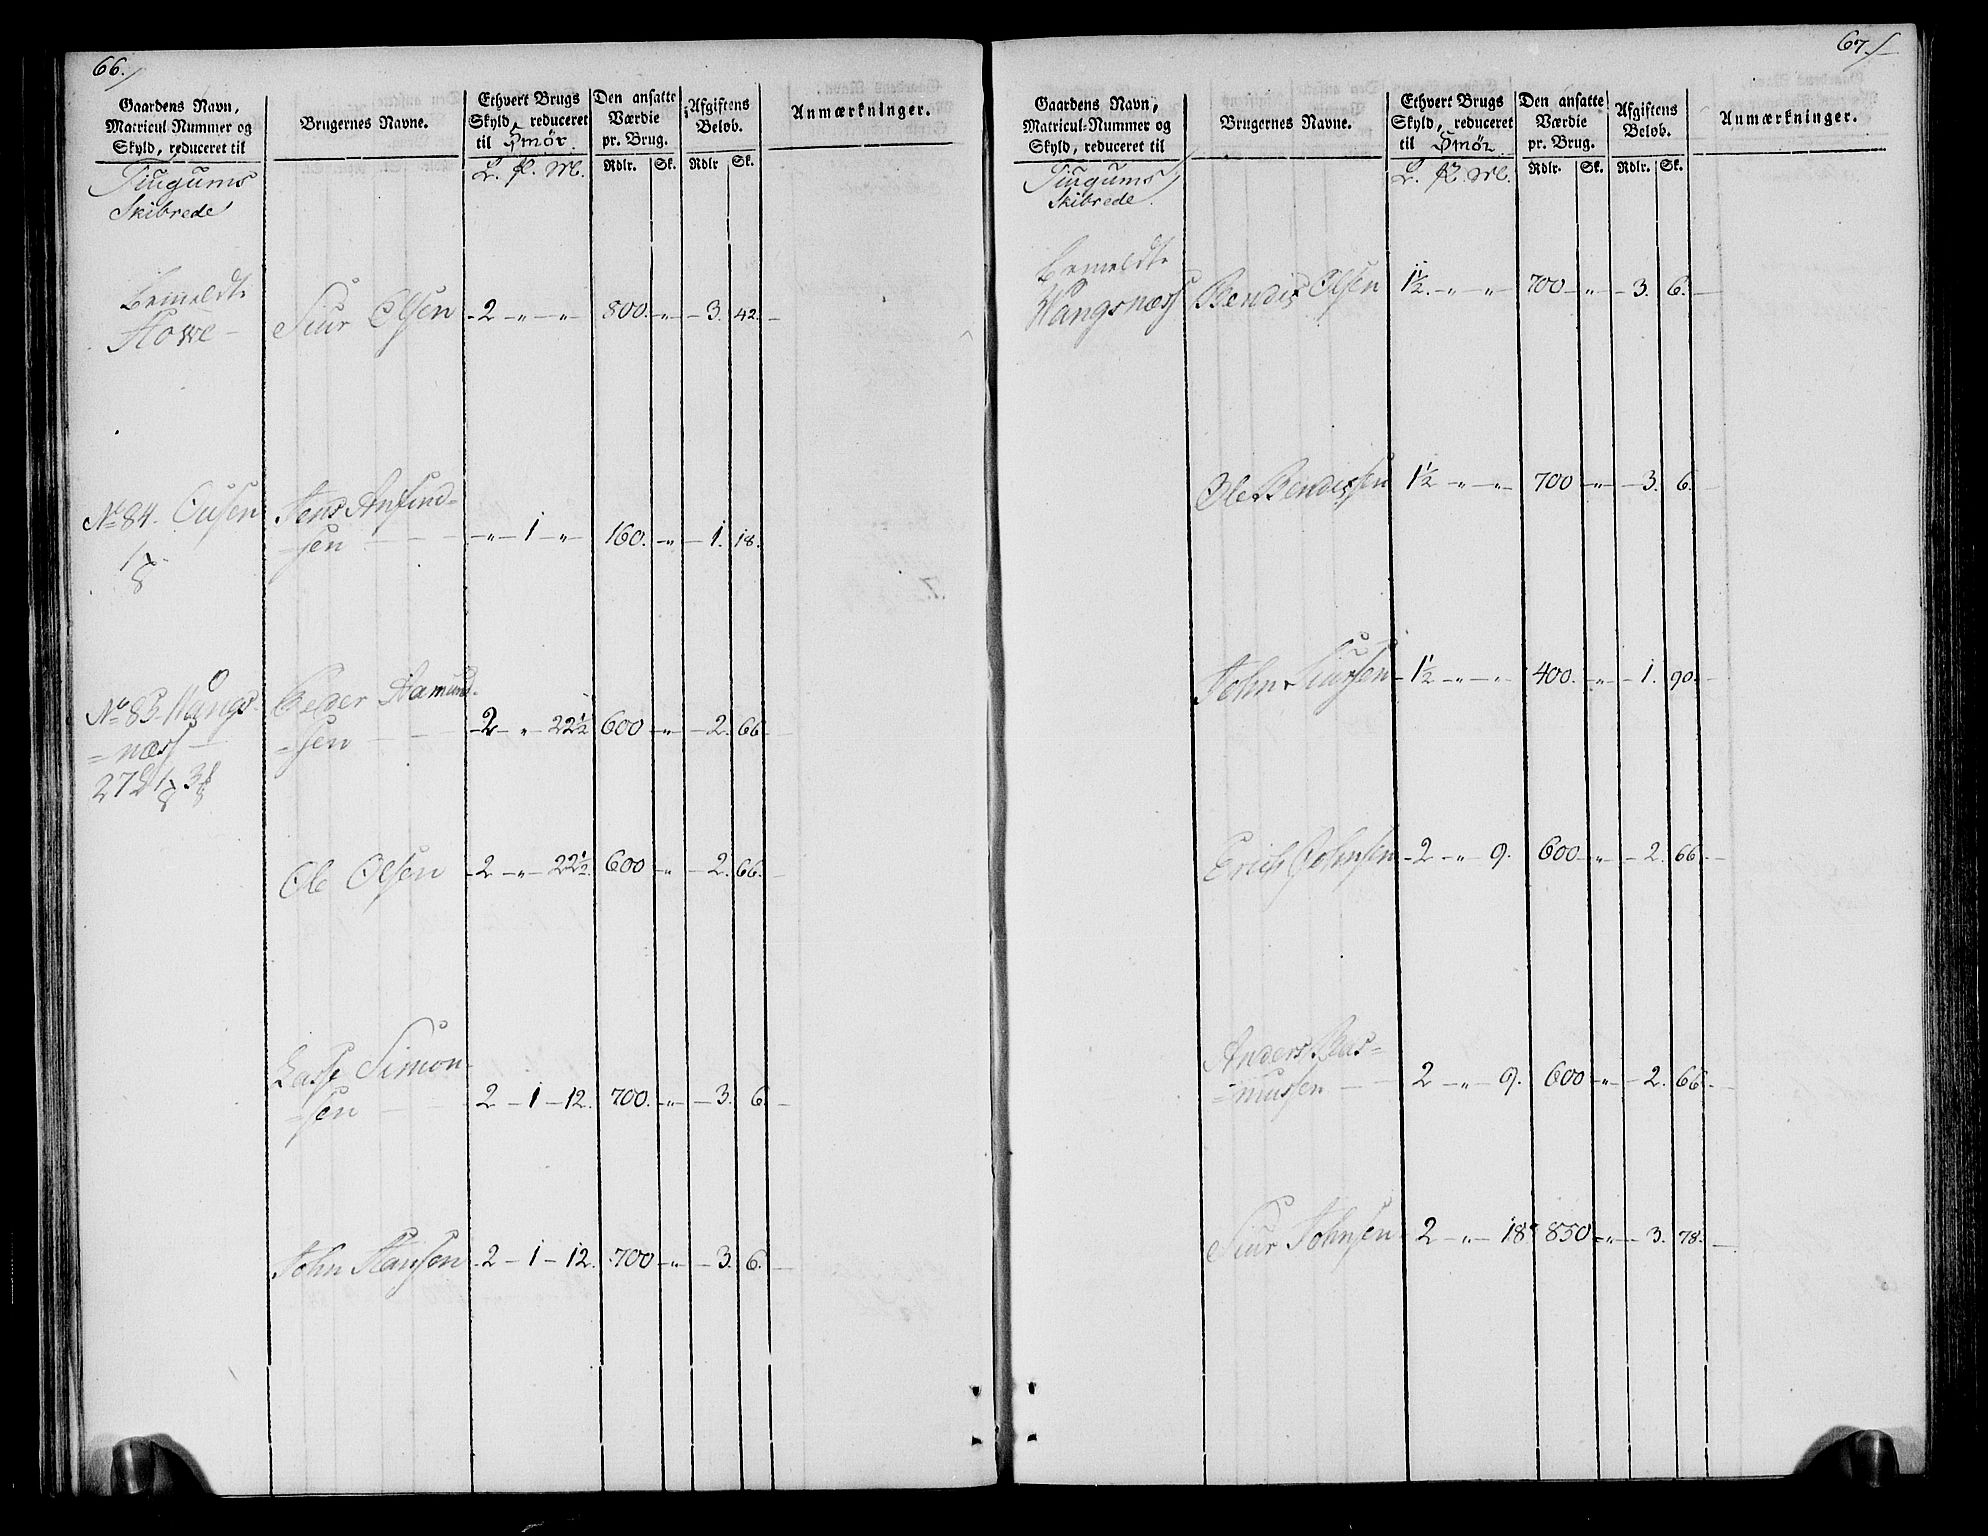 66.
Gaardens Navn,
Matricul-Nummer og
Skyld, reduceret til
Brugernes Navne.
Ethvert Brugs
Skyld, reduceret
til Smør
Den ansatte
Værdie
pr. Brug.
Afgiftens
Beløb.
Anmærkninger.
Rdlr. Sk. Rdlr Sk.
Tiugums
Skibrede
Bemeldte
Howe
Siur Olsen - 2 - „ - „ 800. - „ - 3. 42. -
No 84. Ousen Jens Anfind-
sen - „ - 1 - „ 160. - „ - 1. 18.
1/8
No 85. Wangs-
= næss
Peder Aamund-
= sen - 2 - „ - 22½ 600 - „ - 2. 66 -
Ole Olsen - 2 - „ - 22½. 600 „ - 2. 66. -
Lasse Simon-
= sen 2 - 1 - 12. 700. - „ - 3. 6. -
John Hansen - 2 - 1 - 12. 700 - „ - 3. 6. -
67.
Gaardens Navn,
Matricul-Nummer og
Skyld, reduceret til
Brugernes Navne.
Ethvert Brugs
Skyld, reduceret
til Smør
Den ansatte
Værdie
pr. Brug.
Afgiftens
Beløb.
Anmærkninger.
Rdlr. Sk. Rdlr. Sk.
Tiugums
Skibrede.
Bemeldte
Wangsnæss Bendix Olsen 1½. - „ - „ 700 - „ - 3. 6. -
Ole Bendixsen 1½ - „ - „ 700 - „ - 3. 6. -
John Siursen - 1½ - „ - „ 400. - „ - 1. 90. -
Erich Johnsen - 2 - „ 9. 600 - „ - 2. 66 -
Anders Ras-
= mussen - - 2 - „ - 9. 600 - „ - 2. 66 -
Siur Johnsen - 2 - „ - 18 850 - „ - 3. 78. -